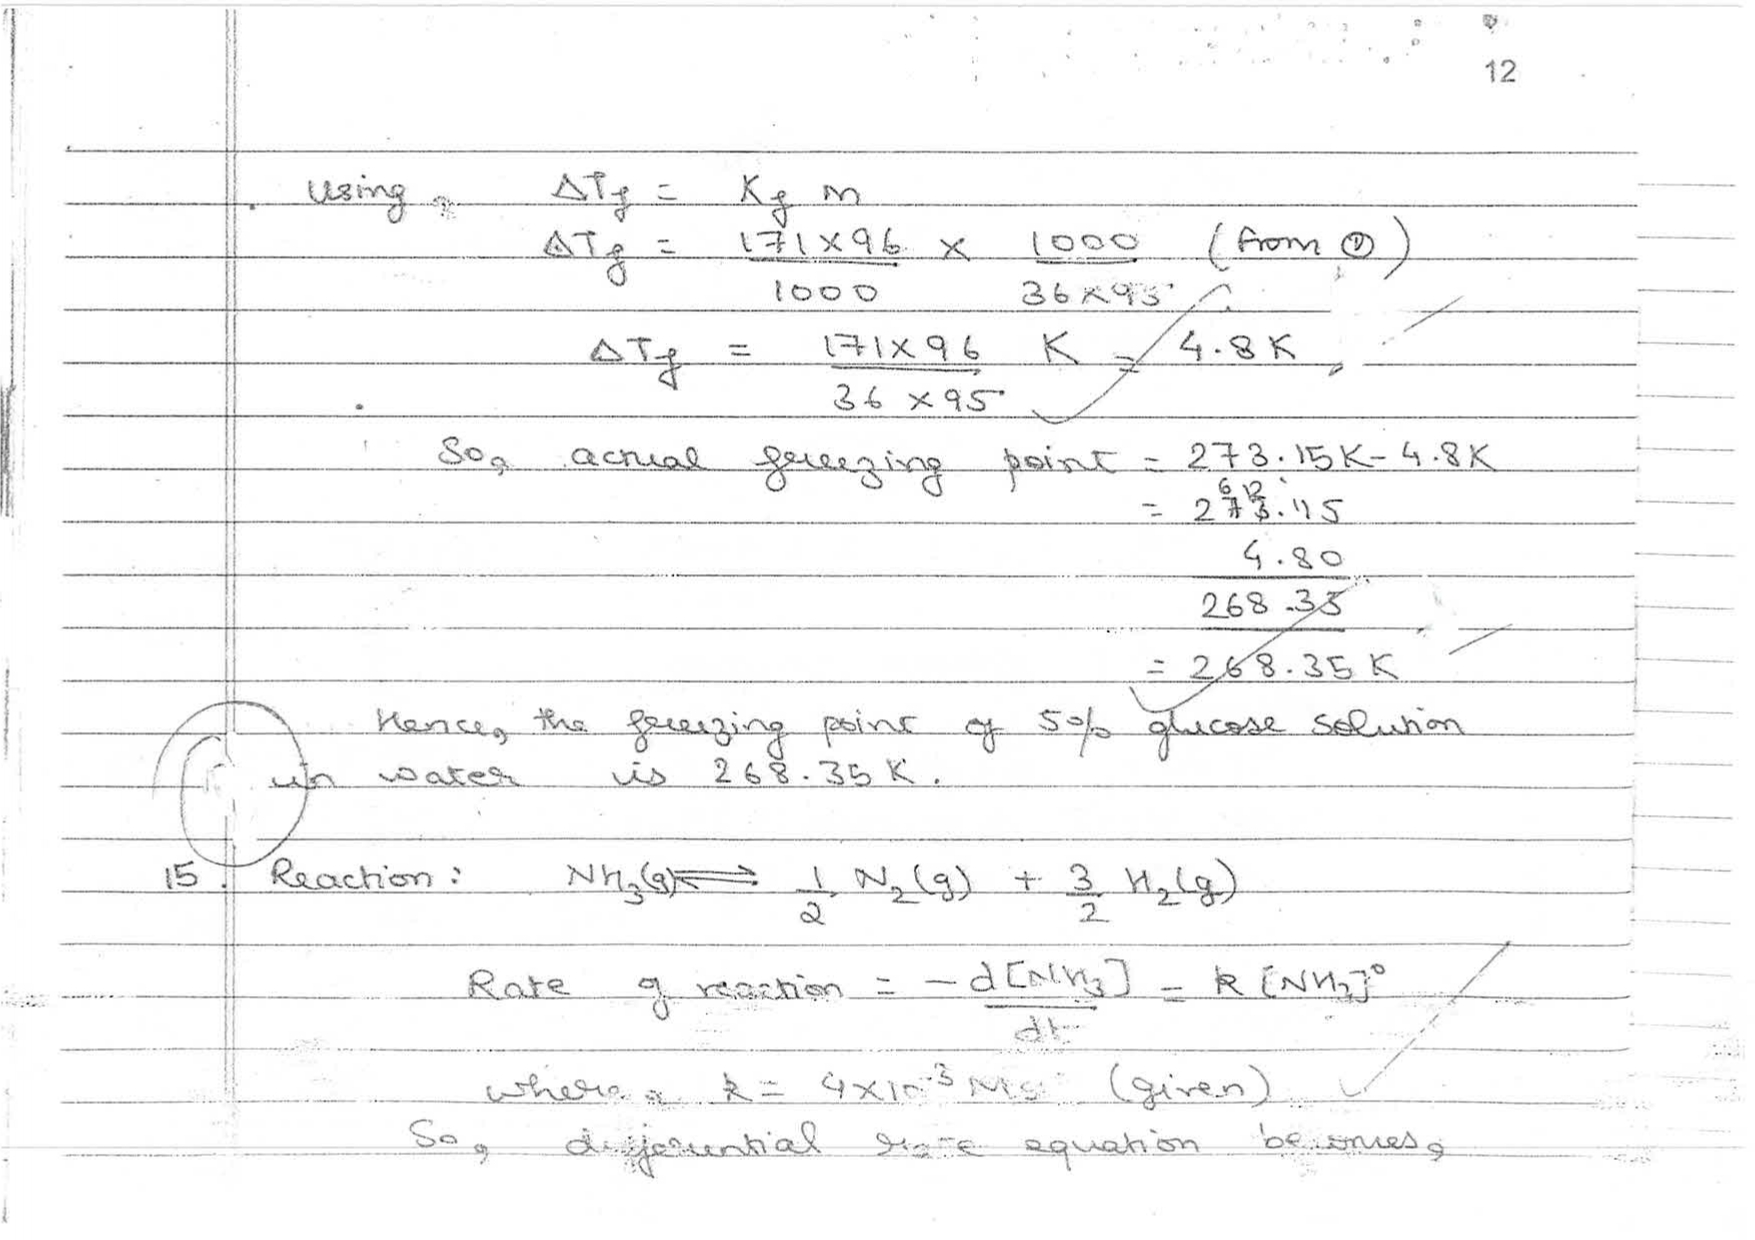 12
Using, ΔTf = Kf m
ΔTf = 171×96/1000 × 1000/36×95 (from ①)
ΔTf = 171×96/36×95 K = 4.8K
So, actual freezing point = 273.15K - 4.8K
6 12
= 273.15
4.80
268.35
= 268.35 K
Hence, the freezing point of 5% glucose solution
in water is 268.35 K.
15. Reaction: NH₃(g) ⇌ 1/2 N₂(g) + 3/2 H₂(g)
Rate of reaction = -d[NH₃]/dt = k [NH₃]⁰
where, k = 4×10⁻³ (given)
So, differential rate equation becomes,